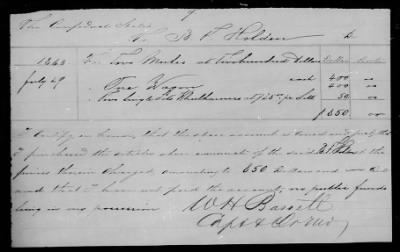 The Confederate States
To B F Holden Dr
1863 For Two Mules at Two hundred Dollars Dollars Cents
July 29 each 400 00
" One Wagon 400 00
" Two 50 00
$850 00
I Certify on honor, that the above account is correct and just, that
I purchased the articles above enumerated of the said at the
prices therein charged, amounting to 850 Dollars and
and that I have not paid the account, no public funds
being in my possession
W H Bassett
Capt &